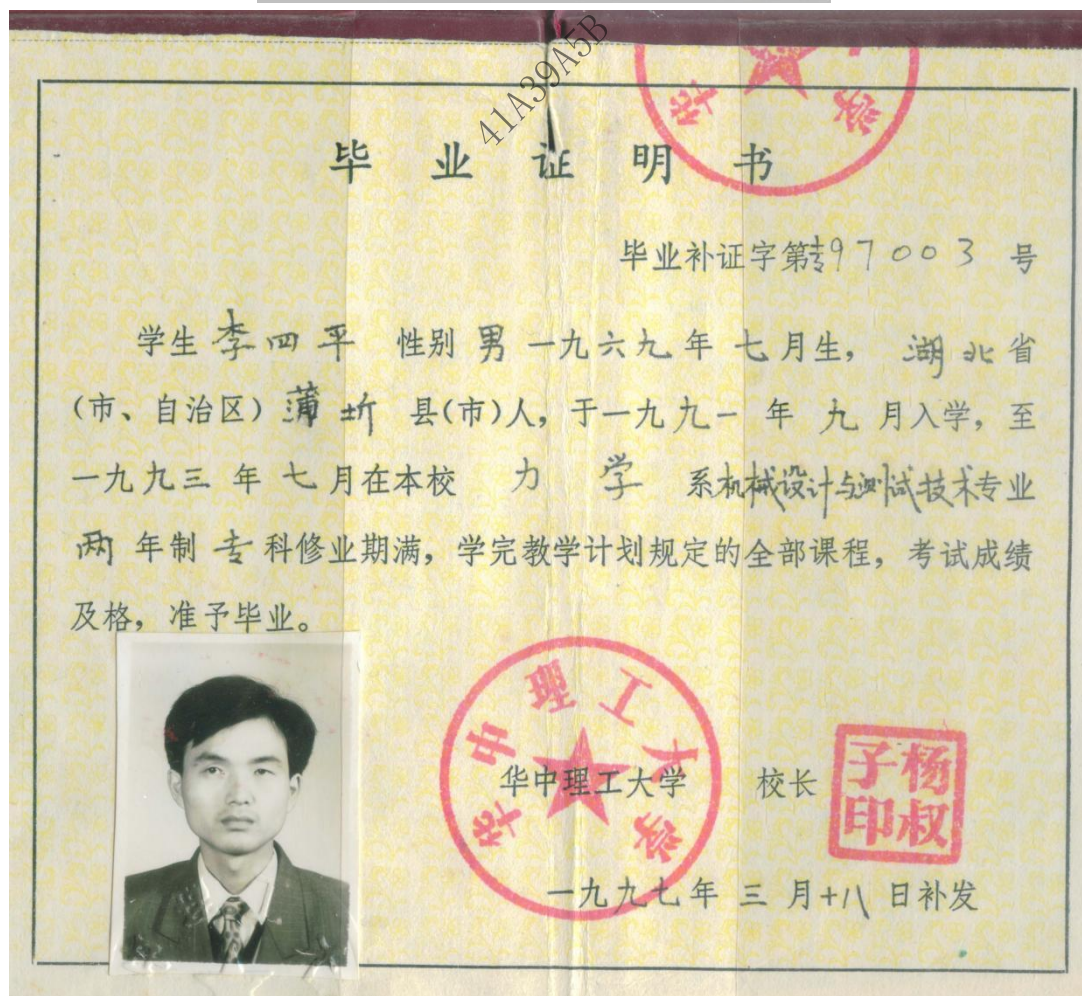 41A39A5B
华 学
毕业证明书
毕业补证字第专97003号
学生 李四平 性别 男 一九六九年 七月生， 湖北省
（市、自治区）蒲圻 县(市)人，于一九九一 年 九 月入学，至
一九九三 年 七月在本校 力 学 系机械设计与测试技术专业
两 年制 专 科修业期满，学完教学计划规定的全部课程，考试成绩
及格，准予毕业。
华中理工大学
华中理工大学 校长
杨叔子印
一九九七年 三 月十八 日补发